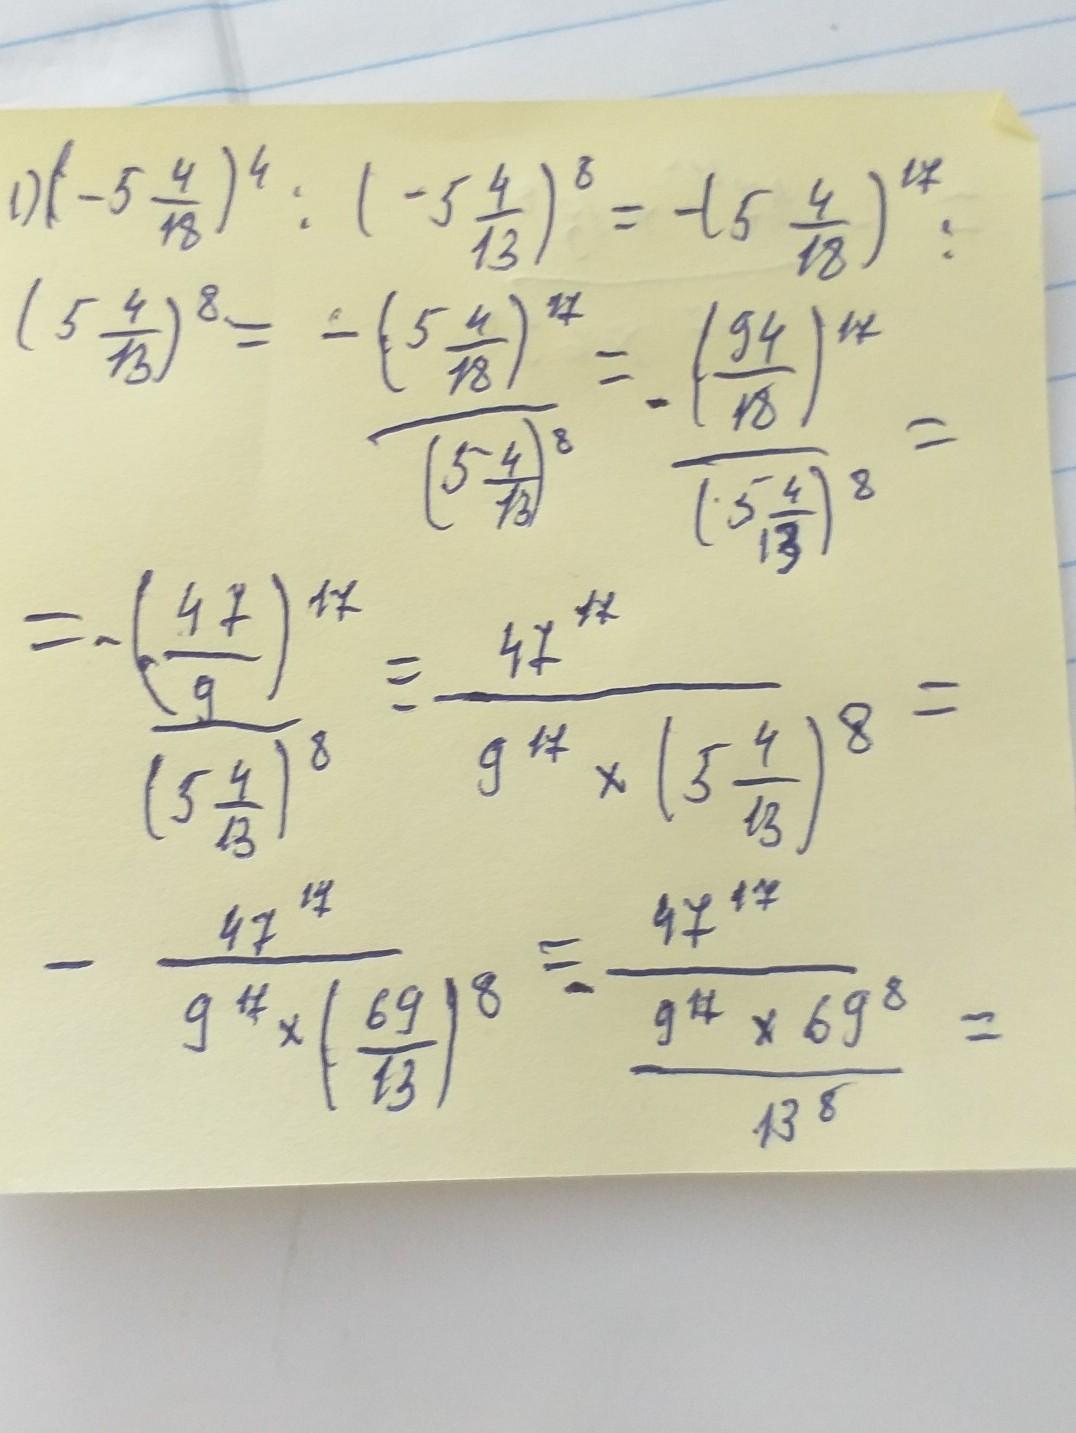 1) (-5 4/18)^4 : (-5 4/13)^8 = -(5 4/18)^17 :
(5 4/13)^8 = -(5 4/18)^17 / (5 4/13)^8 = -(94/18)^17 / (5 4/13)^8 =
= -(47/9)^17 / (5 4/13)^8 = - 47^17 / 9^17 × (5 4/13)^8 =
- 47^17 / 9^17 × (69/13)^8 = - 47^17 / 9^17 × 69^8 / 13^8 =